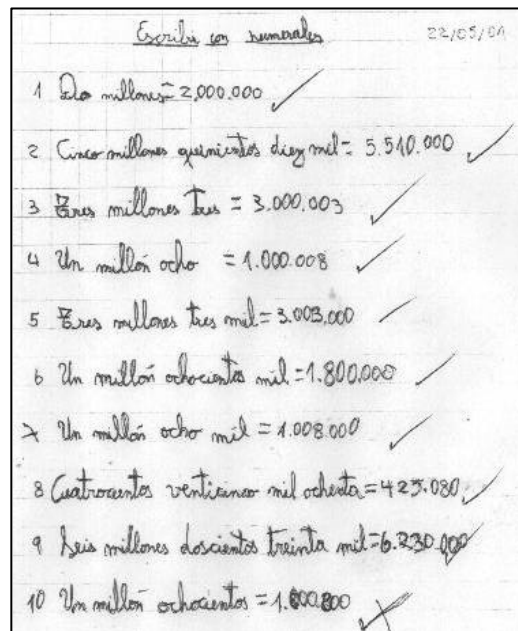 Escribir con numerales 22/05/01
1 Dos millones = 2.000.000
2 Cinco millones quinientos diez mil = 5.510.000
3 Tres millones tres = 3.000.003
4 Un millón ocho = 1.000.008
5 Tres millones tres mil = 3.003.000
6 Un millón ochocientos mil = 1.800.000
7 Un millón ocho mil = 1.008.000
8 Cuatrocientos venticinco mil ochenta = 425.080
9 Seis millones doscientos treinta mil = 6.230.000
10 Un millón ochocientos =